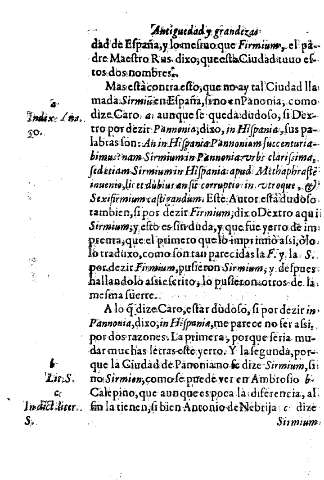 Antiguedad y grandezas
dad de España, y lo mesmo que Firmium, el pa-
dre Maestro Rus. dixo, que esta Ciudad tuuo es-
tos dos nombres.
Mas està contra esto, que no ay tal Ciudad lla-
mada Sirmiũ en España, sino en Panonia; como
dize Caro. a: aunque se queda dudoso, si Dex-
tro por dezir Pannonia; dixo, in Hispania, sus pa-
labras son: An in Hispania Pannoniam succenturia-
bimus? nam Sirmium in Pannonia vrbs clarissima,
sed etiam Sirmium in Hispania: apud Mithaphrastẽ
inuenio, licet dubius an sit corruptio in vtroque, &
Sexifirmium castigandum. Este Autor està dudoso
tambien, si por dezir Firmium, dixo Dextro aqui
Sirmium; y esto es sin duda, y que fue yerro de im-
prenta, que el primero que lo imprimiò assi, ò lo
lo traduxo, como son tan parecidas la F. y la S.
por dezir Firmium, pusieron Sirmium; y despues
hallandolo assi escrito, lo pusieron otros de la
mesma suerte.
A lo q̃ dize Caro, estar dudoso, si por dezir in
Pannonia, dixo; in Hispania, me parece no ser assi,
por dos razones. La primera, porque seria mu-
dar muchas letras este yerro. Y la segunda, por-
que la Ciudad de Panonia no se dize Sirmium, si
no Sirmion, como se puede ver en Ambrosio b
Calepino, que aunque es poca la diferencia, al
fin la tienen, si bien Antonio de Nebrija c dize
Sirmium
a.
Index
20.
b.
Lit. S.
c.
Indict. liter.
S.